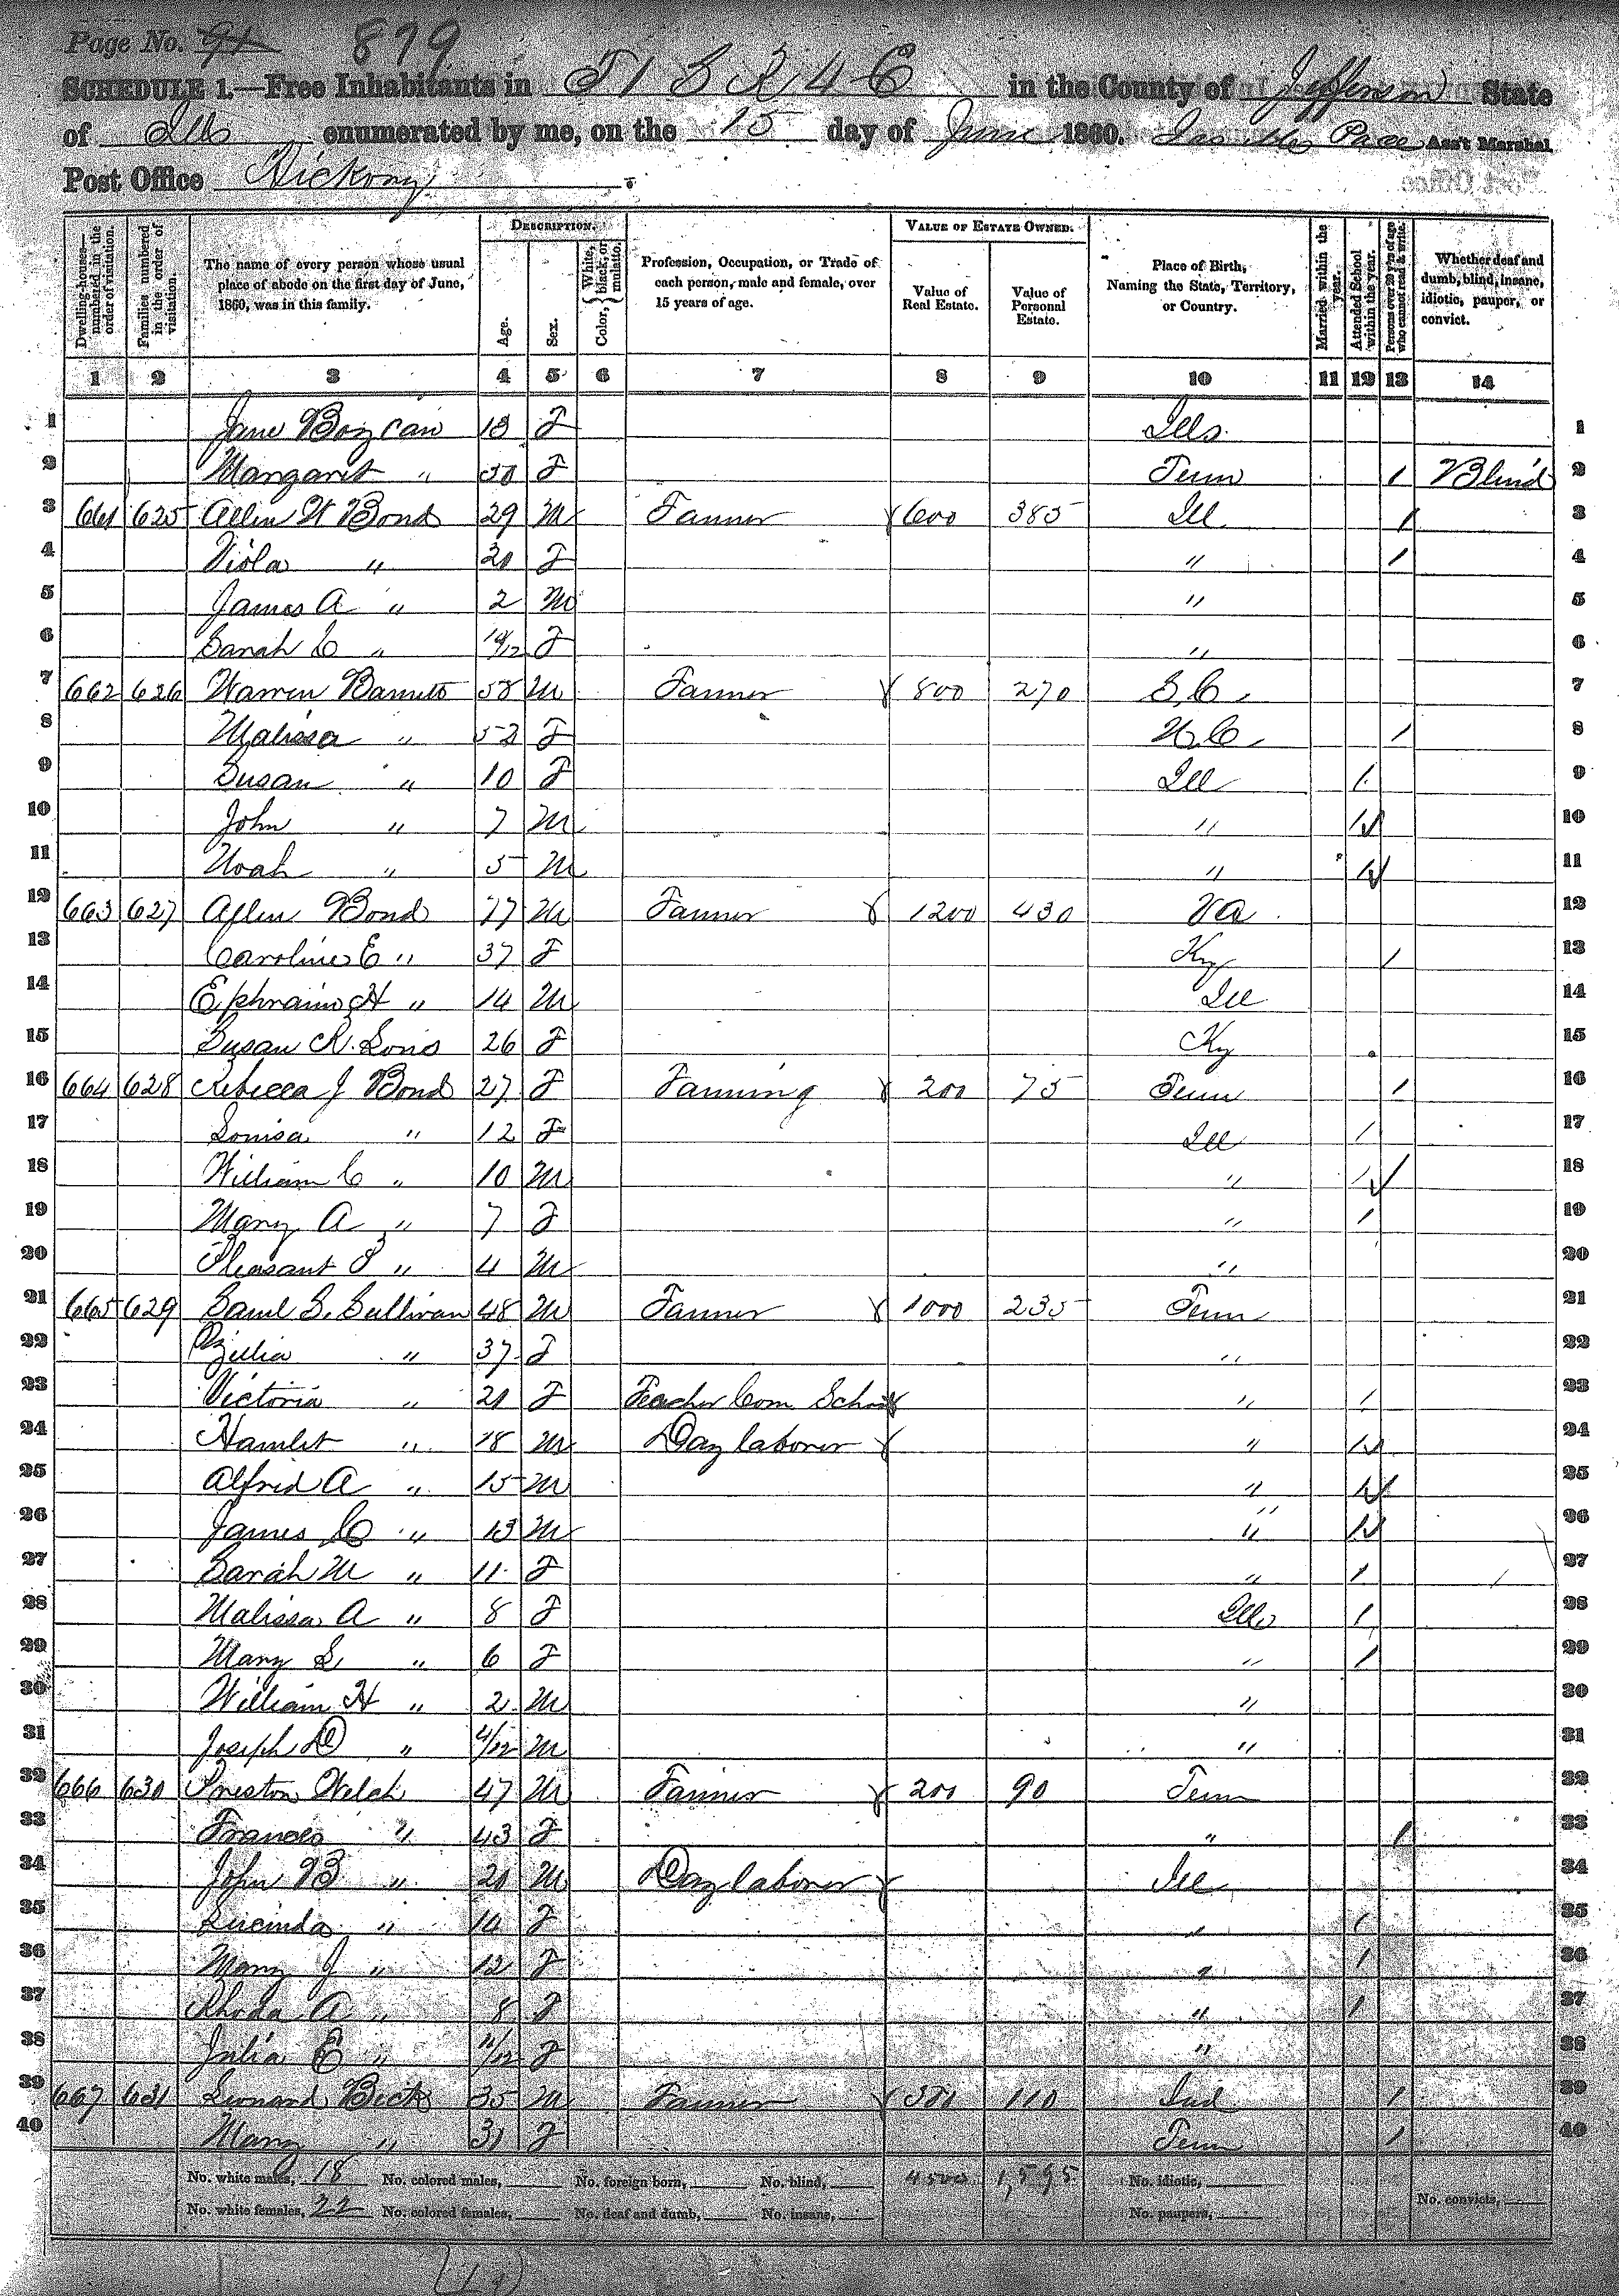 Page No. 91 879
SCHEDULE 1.—Free Inhabitants in T 1 S R 4 E in the County of Jefferson State
of Ills enumerated by me, on the 15 day of June 1860. Pace Ass't Marshal.
Post Office Hickory
Dwelling-houses—numbered in the order of visitation.
Families numbered in the order of visitation.
The name of every person whose usual place of abode on the first day of June, 1860, was in this family.
DESCRIPTION.
Age.
Sex.
Color, { White, black, or mulatto.
Profession, Occupation, or Trade of each person, male and female, over 15 years of age.
VALUE OF ESTATE OWNED.
Value of Real Estate.
Value of Personal Estate.
Place of Birth, Naming the State, Territory, or Country.
Married within the year.
Attended School within the year.
Persons over 20 y'rs of age who cannot read & write.
Whether deaf and dumb, blind, insane, idiotic, pauper, or convict.
1 2 3 4 5 6 7 8 9 10 11 12 13 14
1 Jane 13 F Ills. 1
2 Margaret " F Tenn / Blind 2
3 661 625 Allen W Bond 29 M Farmer 600 385 Ill / 3
4 Viola " F " / 4
5 James A " 2 M " 5
6 Sarah C " 10/12 F " 6
7 662 626 Warren Barnett 58 M Farmer 800 270 S,C, 7
8 Malissa " 52 F N,C, / 8
9 Susan " 10 F Ill / 9
10 John " 7 M " / 10
11 Noah " 5 M " / 11
12 663 627 Allen Bond 77 M Farmer 1200 430 Va 12
13 Caroline E " 37 F Ky / 13
14 Ephraim H " 14 M Ill 14
15 Susan R. 26 F Ky 15
16 664 628 Rebecca J Bond 27 F Farming 200 75 Tenn / 16
17 Louisa " 12 F Ill / 17
18 William C " 10 M " / 18
19 Mary A " 7 F " / 19
20 Pleasant " 4 M " 20
21 665 629 Saml S. Sullivan 48 M Farmer 1000 235 Tenn 21
22 Zillia " 37 F " 22
23 Victoria " F Teacher Com. School " / 23
24 Hamlet " 18 M Day laborer " / 24
25 Alfred A " 15 M " / 25
26 James C " 13 M " / 26
27 Sarah M " 11 F " / 27
28 Malissa A " 8 F Ills / 28
29 Mary L " 6 F " / 29
30 William H " 2 M " 30
31 Joseph D " 4/12 M " 31
32 666 630 Preston Welch 47 M Farmer 200 90 Tenn 32
33 Frances " 43 F " / 33
34 John B " M Day laborer Ill 34
35 Lucinda " F " / 35
36 Mary J " 12 F " / 36
37 Rhoda A " 8 F " / 37
38 Julia E " 11/12 F " 38
39 667 631 Leonard 35 M Farmer 110 Ind / 39
40 Mary " F Tenn / 40
No. white males, 18 No. colored males, No. foreign born, No. blind, 1,595 No. idiotic,
No. white females, 22 No. colored females, No. deaf and dumb, No. insane, No. paupers, No. convicts,